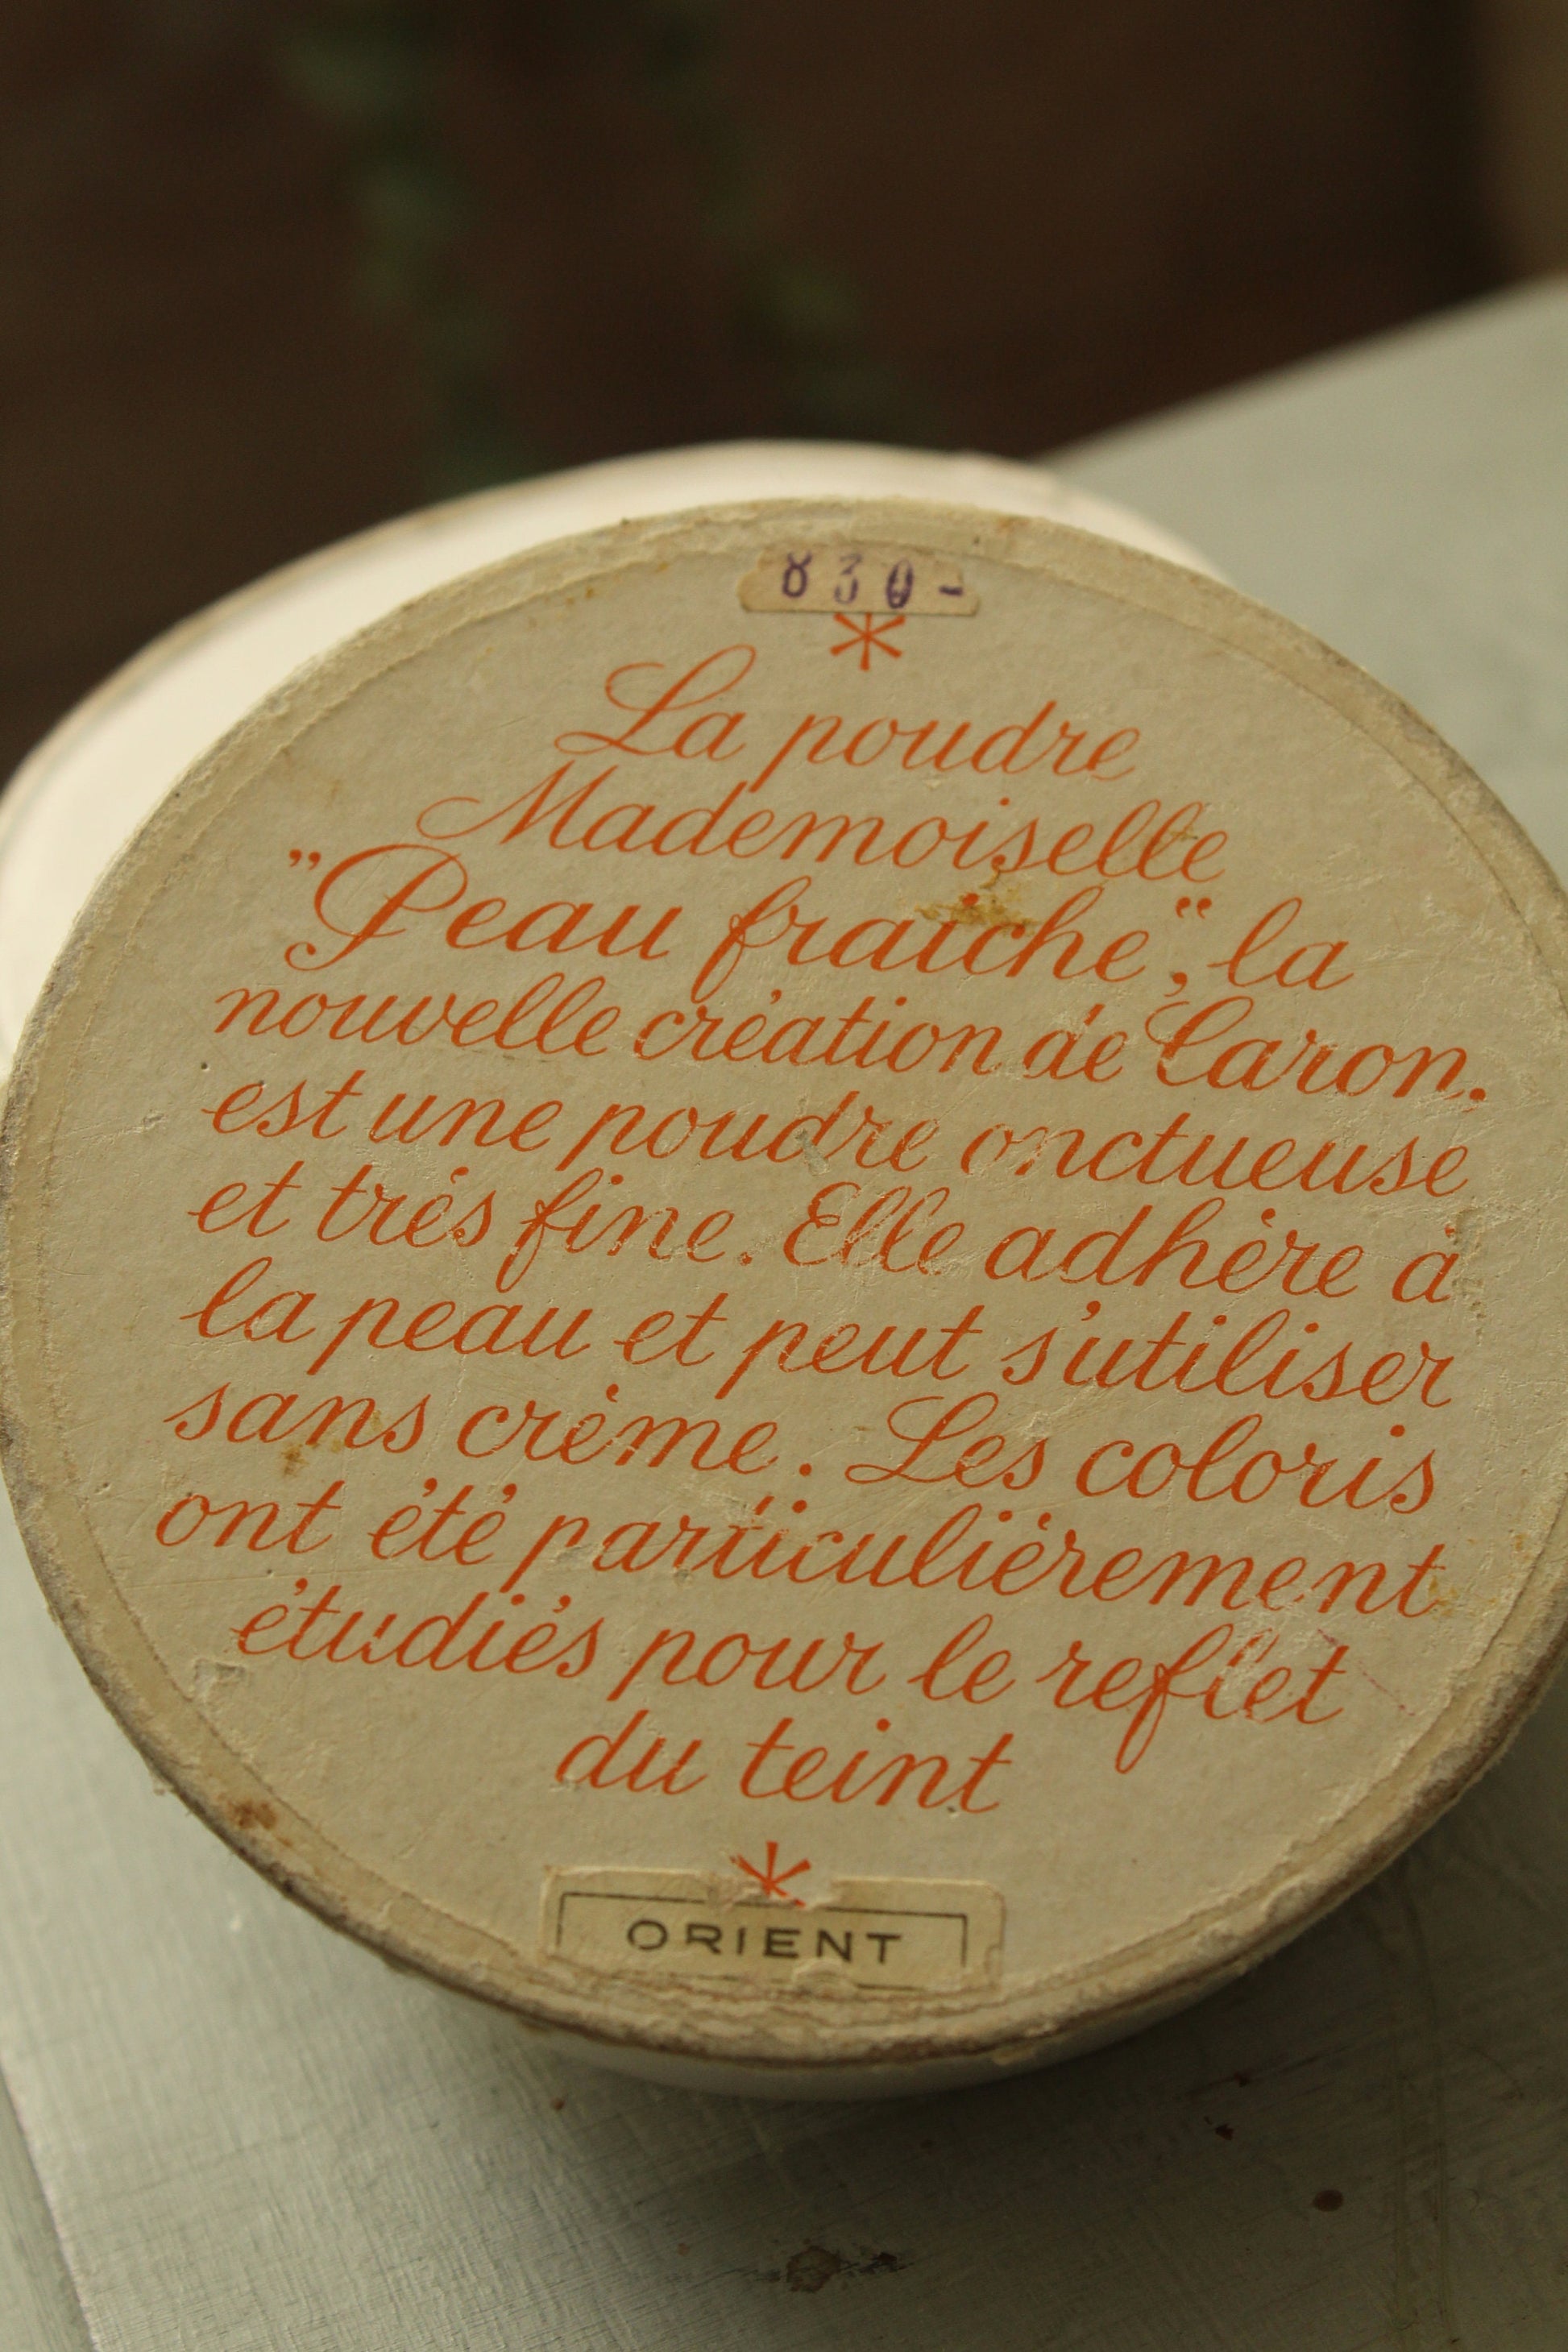 830-
*
La poudre
Mademoiselle
"Peau fraiche", la
nouvelle création de Caron.
est une poudre onctueuse
et très fine. Elle adhère à
la peau et peut s'utiliser
sans crème. Les coloris
ont été particulièrement
étudiés pour le reflet
du teint
*
ORIENT